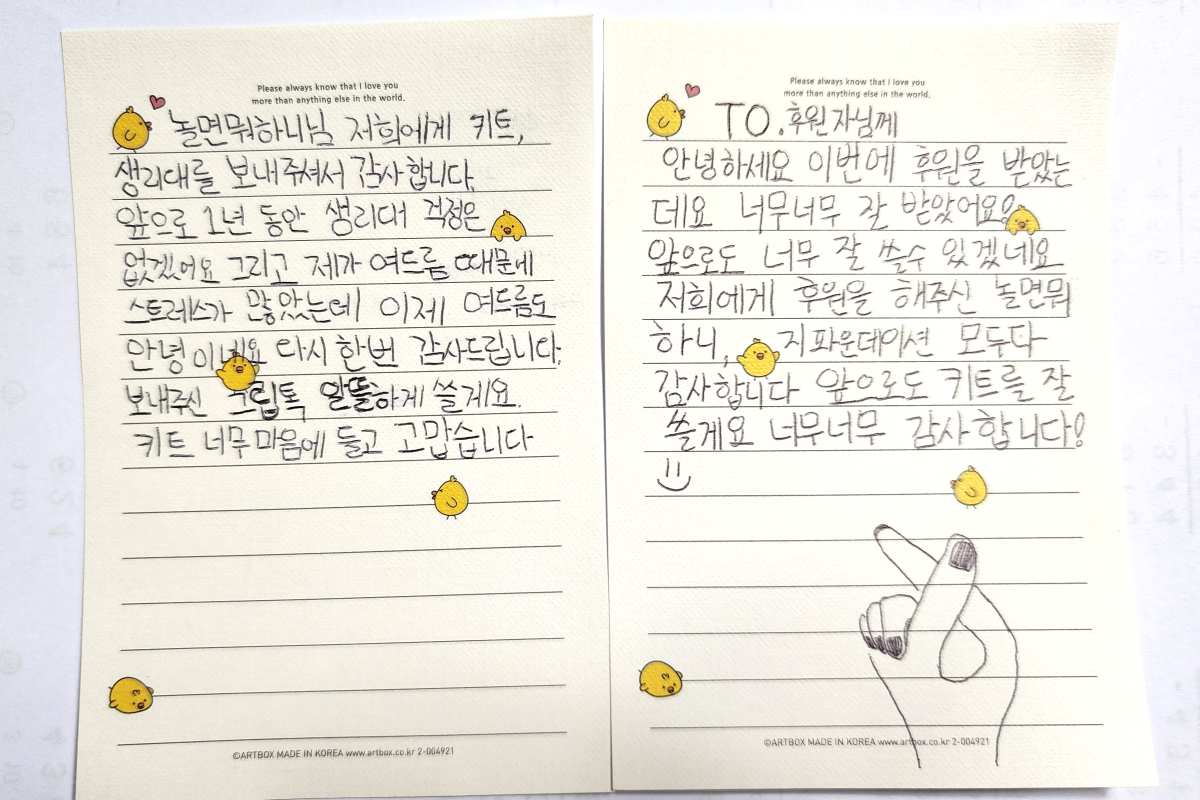 Please always know that I love you
more than anything else in the world.
놀면뭐하니님 저희에게 키트,
생리대를 보내주셔서 감사합니다.
앞으로 1년 동안 생리대 걱정은
없겠어요 그리고 제가 여드름 때문에
스트레스가 많았는데 이제 여드름도
안녕이네요 다시 한번 감사드립니다.
보내주신 그립톡 알뜰하게 쓸게요.
키트 너무 마음에 들고 고맙습니다
©ARTBOX MADE IN KOREA www.artbox.co.kr 2-004921
Please always know that I love you
more than anything else in the world.
TO.후원자님께
안녕하세요 이번에 후원을 받았는
데요 너무너무 잘 받았어요!
앞으로도 너무 잘 쓸수 있겠네요
저희에게 후원을 해주신 놀면뭐
하니, 지파운데이션 모두다
감사합니다 앞으로도 키트를 잘
쓸게요 너무너무 감사합니다!
©ARTBOX MADE IN KOREA www.artbox.co.kr 2-004921